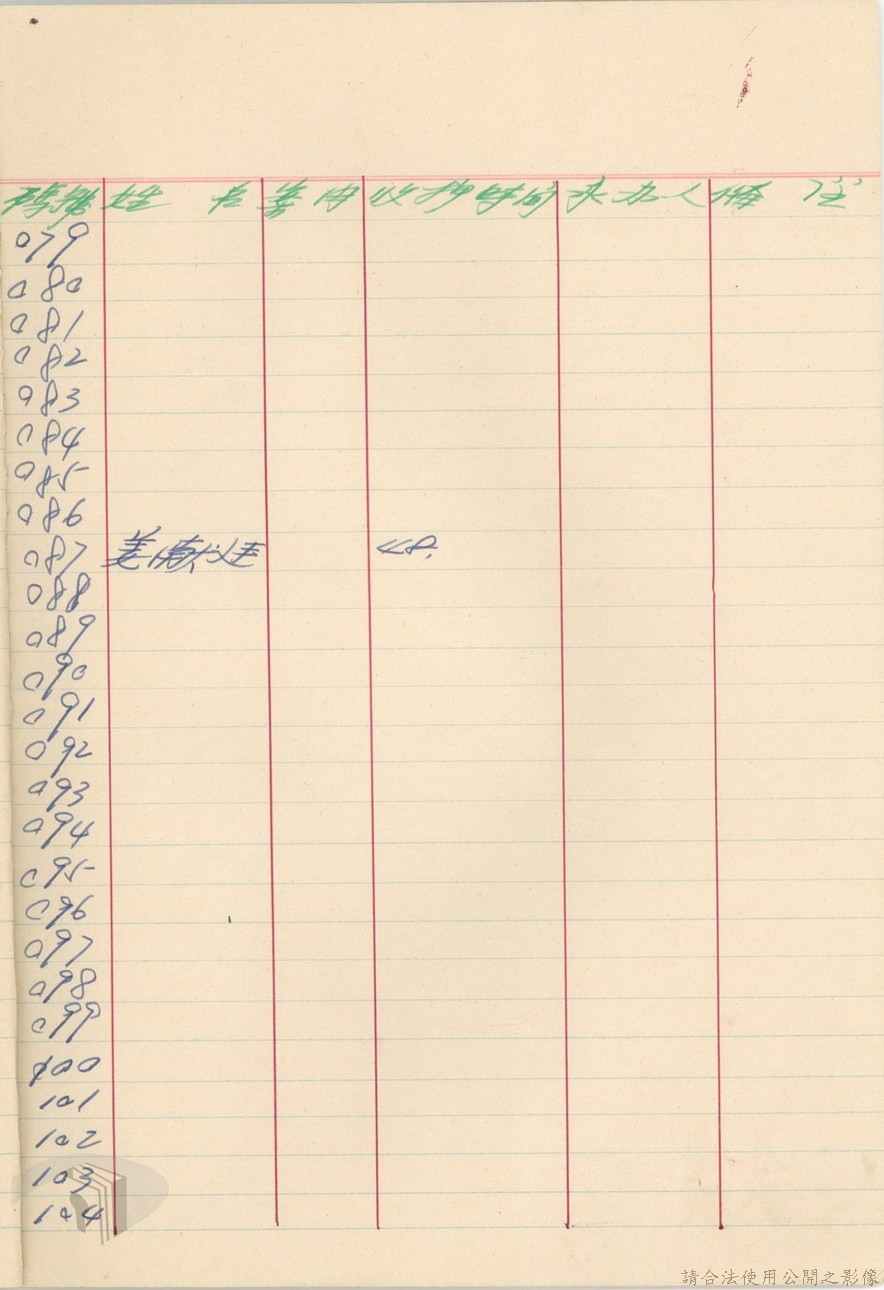 號 姓 名 案由 收抄時间 承办人 備 註
079
080
081
082
083
084
085
086
087 姜 48.
088
089
090
091
092
093
094
095
096
097
098
099
100
101
102
103
104
請合法使用公開之影像